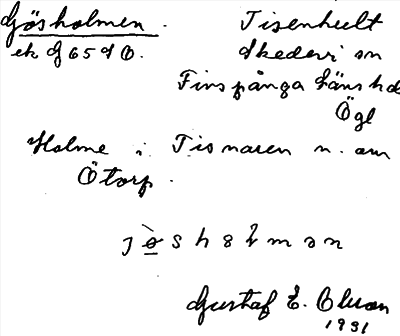 Gösholmen.
ek Gj 65 d Ö.
Tisenhult
Skedevi sn
Finspånga läns hd
Ögl
Holme i Tisnaren n. om
Ötorp.
Gustaf E. Olsson
1931